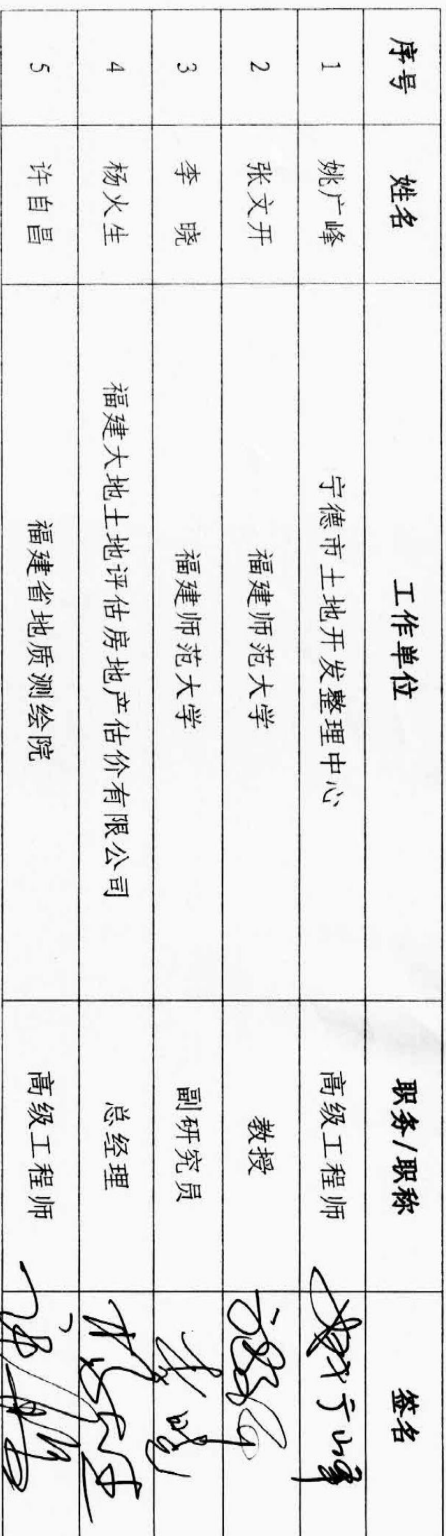 序号 姓名 工作单位 职务/职称 签名
1 姚广峰 宁德市土地开发整理中心 高级工程师 姚广峰
2 张文开 福建师范大学 教授
3 李 晓 福建师范大学 副研究员 李晓
4 杨火生 福建大地土地评估房地产估价有限公司 总经理 杨火生
5 许自昌 福建省地质测绘院 高级工程师